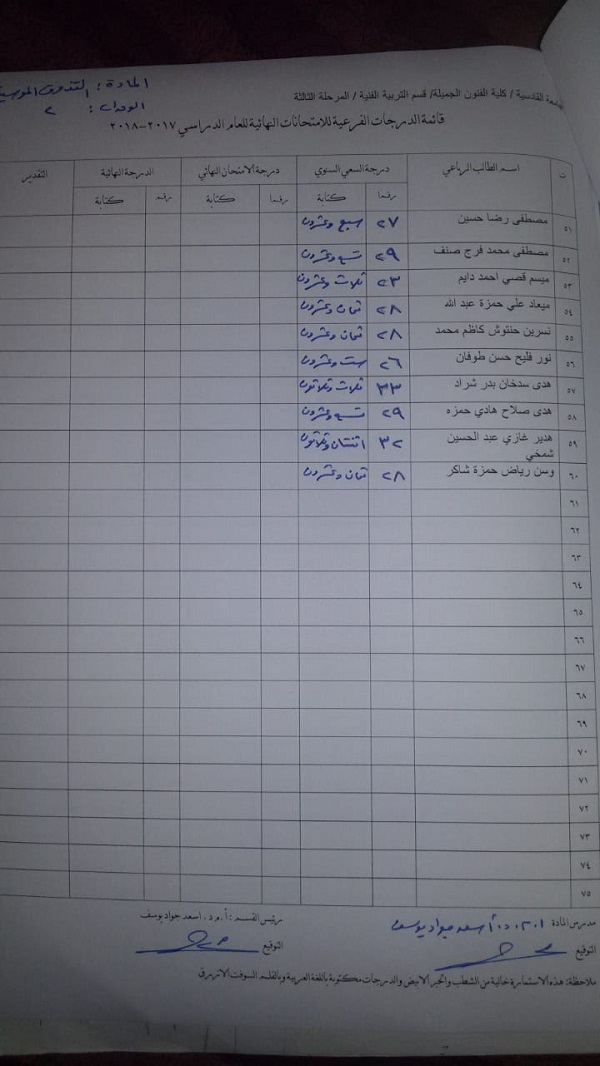 المادة : التذوق الموسيـ
الوحدات : ٢
جامعة القادسية / كلية الفنون الجميلة/ قسم التربية الفنية / المرحلة الثالثة
قائمة الدرجات الفرعية للامتحانات النهائية للعام الدراسي ٢٠١٧-٢٠١٨
ت اسم الطالب الرباعي درجة السعي السنوي درجة الامتحان النهائي الدرجة النهائية التقدير
رقما كتابة رقما كتابة رقما كتابة
٥١ مصطفى رضا حسين ٢٧ سبع وعشرون
٥٢ مصطفى محمد فرج صنف ٢٩ تسع وعشرون
٥٣ ميسم قصي احمد دايم ٢٣ ثلاث وعشرون
٥٤ ميعاد علي حمزة عبد الله ٢٨ ثمان وعشرون
٥٥ نسرين حنتوش كاظم محمد ٢٨ ثمان وعشرون
٥٦ نور فليح حسن طوفان ٢٦ ست وعشرون
٥٧ هدى سدخان بدر شراد ٣٣ ثلاث وثلاثون
٥٨ هدى صلاح هادي حمزه ٢٩ تسع وعشرون
٥٩ هدير غازي عبد الحسين ٣٢ اثنتان وثلاثون
شمخي
٦٠ وسن رياض حمزة شاكر ٢٨ ثمان وعشرون
٦١
٦٢
٦٣
٦٤
٦٥
٦٦
٦٧
٦٨
٦٩
٧٠
٧١
٧٢
٧٣
٧٤
٧٥
مدرس المادة أ.م.د. أسعد جواد يوسف رئيس القسم : أ.م.د. اسعد جواد يوسف
التوقيع التوقيع
ملاحظة: هذه الاستمارة خالية من الشطب والحبر الابيض والدرجات مكتوبة باللغة العربية وبالقلم السوفت الازرق